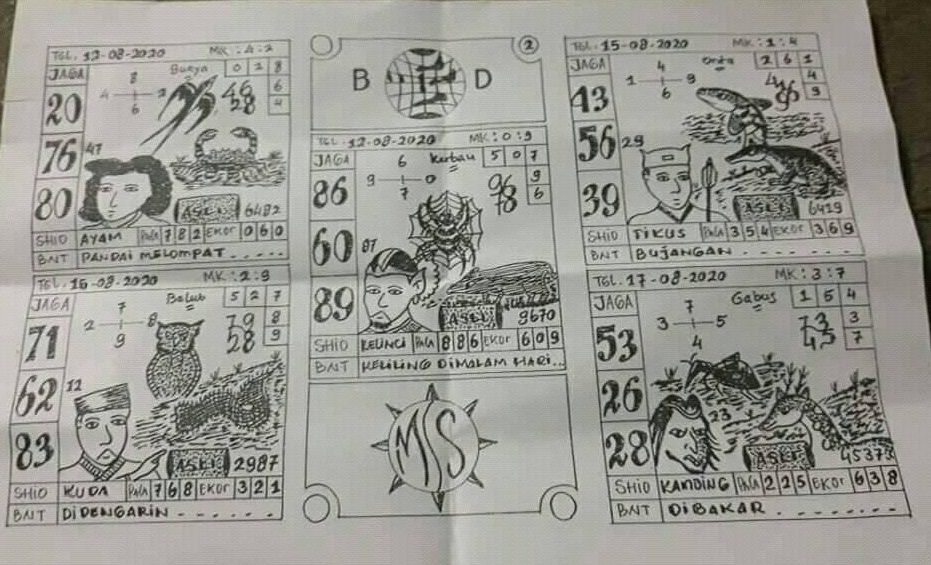 TGL. 12-08-2020 MK : 4 : 2
JAGA
8
Buaya
0 2 8
4 2
6
6
4
20
46
28
76
47
80
ASLI 6482
SHIO AYAM PALA 7 8 2 EKOR 0 6 0
BNT PANDAI MELOMPAT . . . . .
TGL. 16-08-2020 MK : 2 : 9
JAGA
7
Belut
5 2 7
2 8
9
79
28
8
9
71
62
12
83
ASLI 2987
SHIO KUDA PALA 7 6 8 EKOR 3 2 1
BNT DIDENGARIN - - - - - -
2
B D
TGL. 12-08-2020 MK : 0 : 9
JAGA
6
Kerbau
5 0 7
9 0
7
96
78
9
6
86
60
87
89
ASLI 9670
SHIO KELINCI PALA 8 8 6 EKOR 6 0 9
BNT KELILING DIMALAM HARI...
MS
TGL. 15-08-2020 MK : 1 : 4
JAGA
4
Onta
2 6 1
1 9
6
46
96
4
9
43
56
29
39
ASLI 6419
SHIO TIKUS PALA 3 5 4 EKOR 3 6 9
BNT BUJANGAN - - - - - - - -
TGL. 17-08-2020 MK : 3 : 7
JAGA
7
Gabus
1 5 4
3 5
4
73
45
3
7
53
26
23
28
ASLI 45373
SHIO KAMBING PALA 2 2 5 EKOR 6 3 8
BNT DIBAKAR - - - - - - - -